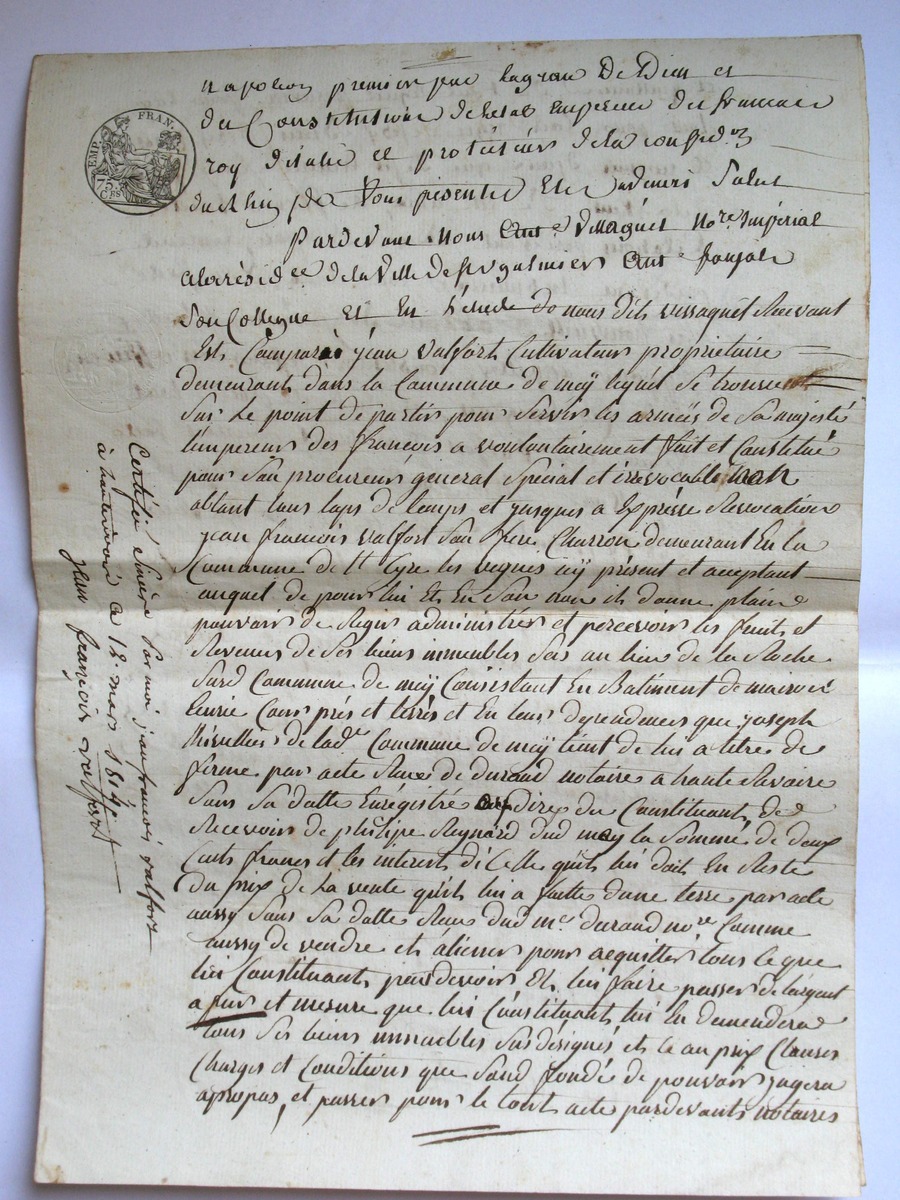 EMP. FRAN.
75 CES
napoleon premier par la grace De Dieu et
des Constitutions de letat Empereur des francais
roy ditalie et protecteur de la confed.on
du Rhin Vous presentes Et Avenir Salut
Pardevant Nous Ant.e Vissaguet No.re Impérial
alarésid.ce de la Ville de st galmier Ant.e
Son Collegue Et En presence de nous dits vissaguet Recevant
Est Comparu jean valfort Cultivateur proprietaire
demeurant dans la Commune de mey lequel Se trouvent
Sur Le point de partir pour Servir les armées de Sa majesté
l'empereur des françois a voulontairement fait et Constitué
pour Son procureur general Special et irrevocable
ablant tous laps de temps et jusques a Expresse Revocation
jean francois valfort Son frere Charron demeurant En la
Commune de st Cyre les vegnes icy présent et acceptant
auquel de pour lui Et En Son nom il donne plain
pouvoir de Regir administrer et percevoir les fruits et
Revenus de Ses biens immeubles Sis au lieu de la Roche
Commune de mey Consistant En Batiment de maison
Curie Cour prés et terres et En leurs dependences que joseph
de lad.e Commune de mey tient de lui a titre de
ferme par acte Reçu de durand notaire a haute Rivoire
Sans Sa datte Enregistré au dire du Constituant, de
Recevoir de philipe Reynard dud mey la Somme de deux
Cents francs et les interets d'icelle qu'il lui doit En Reste
du prix de La vente qu'il lui a faitte d'une terre par acte
aussy Sans Sa datte Reçu dud m.e durand no.re Comme
aussy de vendre et aliener pour acquitter tous ce que
lui Constituant peu devoir Et lui faire passer de largent
a fur et mesure que lui Constituant lui En demendera
tous Ses biens immeubles Susdésignés et ce au prix Clauses
Charges et Conditions que Sond fondé de pouvoir jugera
apropos, et passer pour le tout acte pardevants notaires
Certifié Sincère Par moi jean francois valfort
à hauterivoire ce 12 mars 1814
jean françois valfort